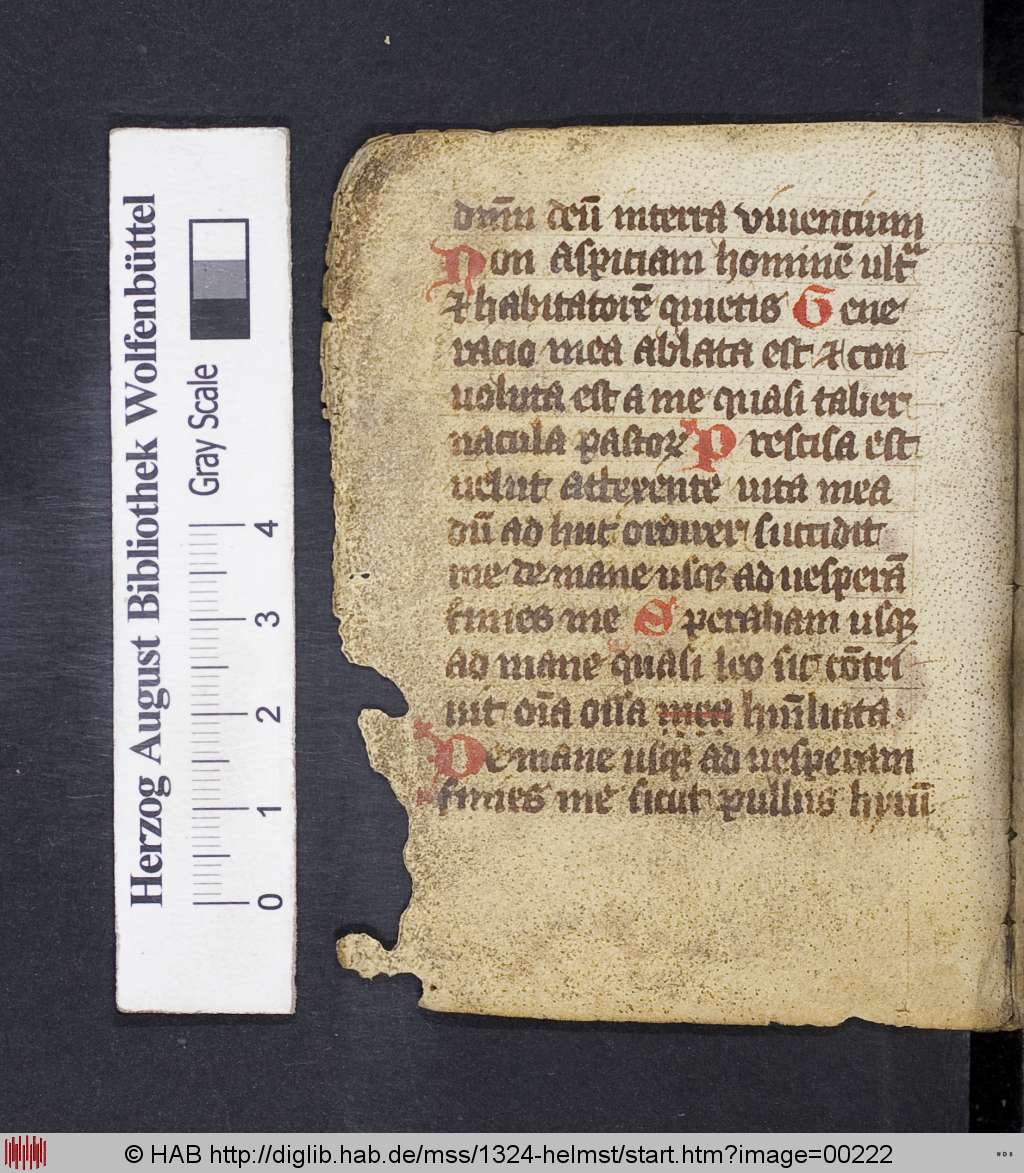 Herzog August Bibliothek Wolfenbüttel
Gray Scale
0 1 2 3 4
dnm̄ deū interra viuentium
Non aspitiam hominē ult
⁊ habitatorē quietis Gene
racio mea ablata est ⁊ con
uoluta est a me quasi taber
nacula pastoꝝ Prescisa est
uelut attexente uita mea
dū ad huc ordirer succidit
me de mane usqꝫ ad uesperā
finies me Sperabam usqꝫ
ad mane quasi leo sic cōtri
uit oīa ossa mea hm̄liata
De mane usqꝫ ad uesperam
finies me sicut pullus hyrūī
© HAB http://diglib.hab.de/mss/1324-helmst/start.htm?image=00222